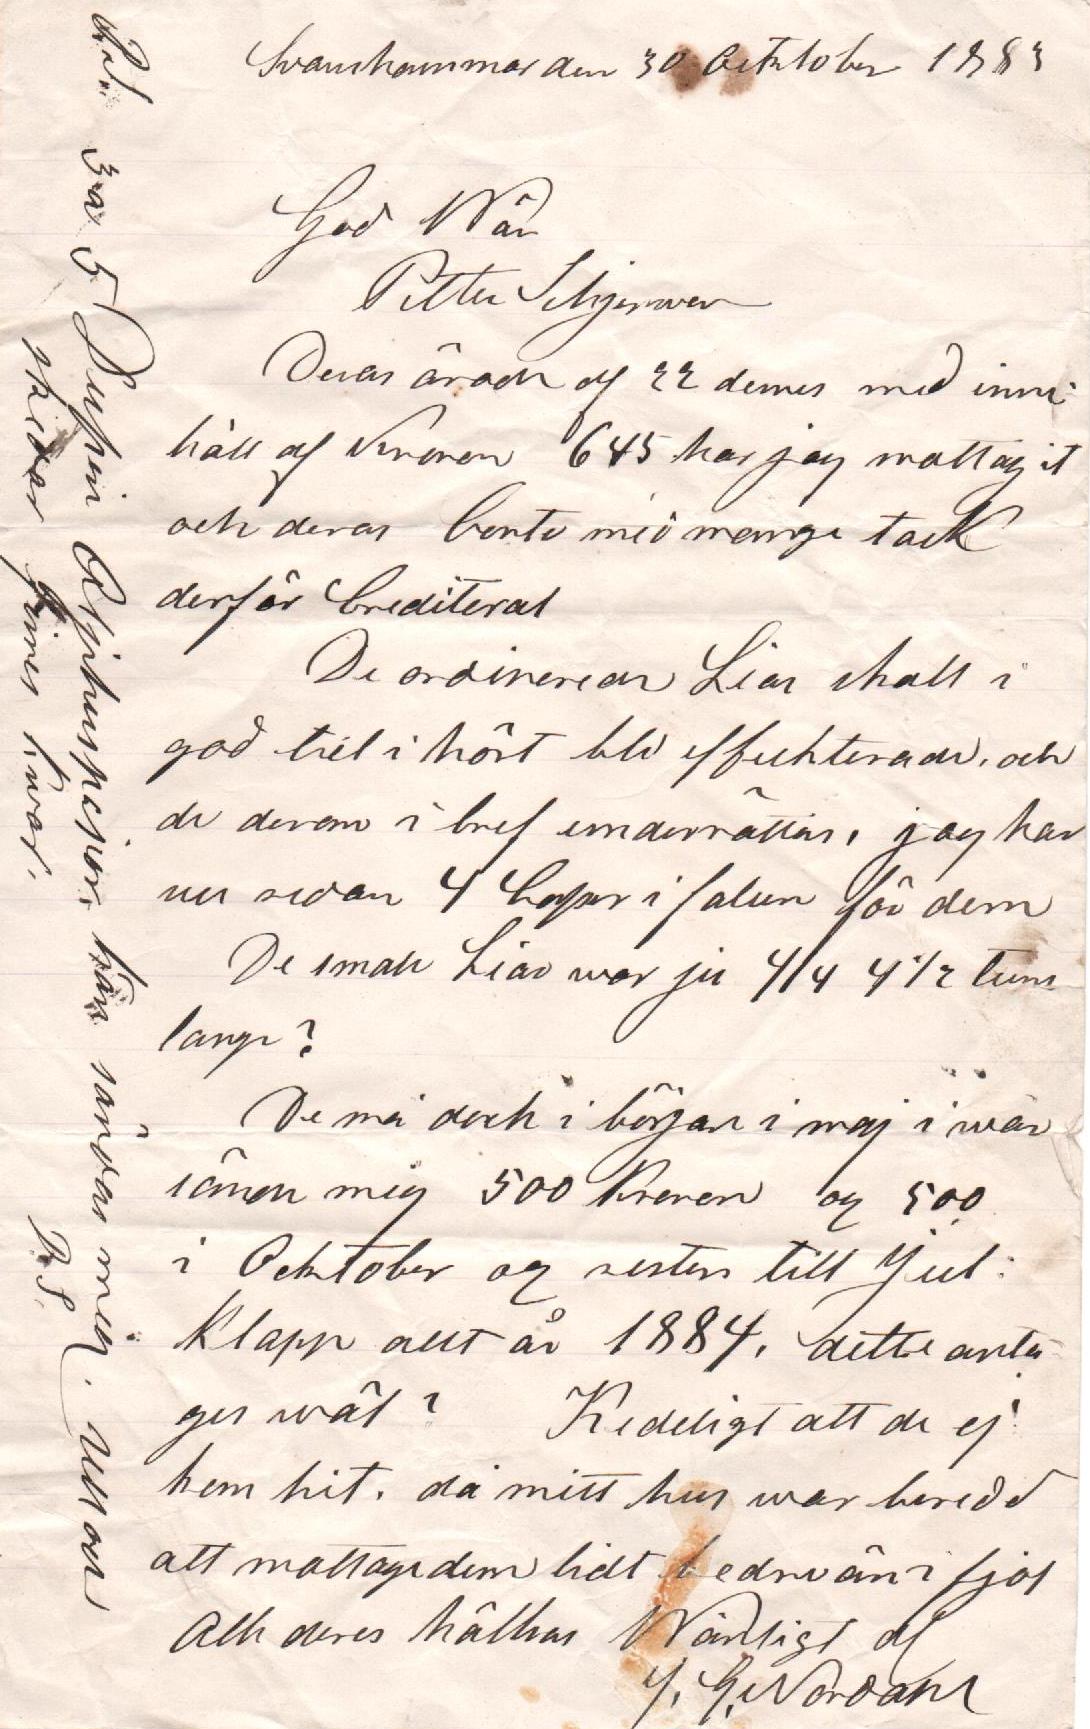 Svanshammar den 30 Octtober 1883
God Wän
Petter
Deras ärade af 22 dennes med inne
håll af Kronor 645 har jag mottagit
och deras Conto med mange tack
derför Crediterat
De ordinerede Liar skall i
god tid i höst bli effecterade, och
de derom i bref underrättas, jag har
nu redan 4 i falun för dem
De smale Liar war ju 4/4 4 1/2 tum
lange?
De må dock i början i maj i wår
sände mig 500 Kroner og 500
i Ocktober og resten till Jul:
Klapp allt år 1884, dette anta
ges wäl? Kedeligt att de ej
kom hit, då mitt hus war beredd
att mottage dem lidt bedre än i fjol
Alle deres hälsas Wänligt af
J. G. Nordahl
3 a 5 Dusin kan sändas mig,
skidor finnes kvar.
D. S.